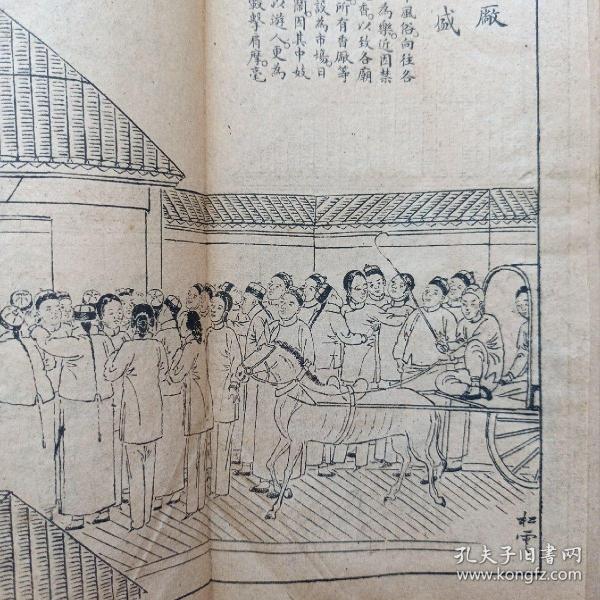 厰
盛
風俗向往各
為樂近因禁
香以致各廟
所有香厰等
設為市塲日
鬧因其中妓
以遊人更為
轂擊肩摩毫
松雲
孔夫子旧书网
www.kongfz.com